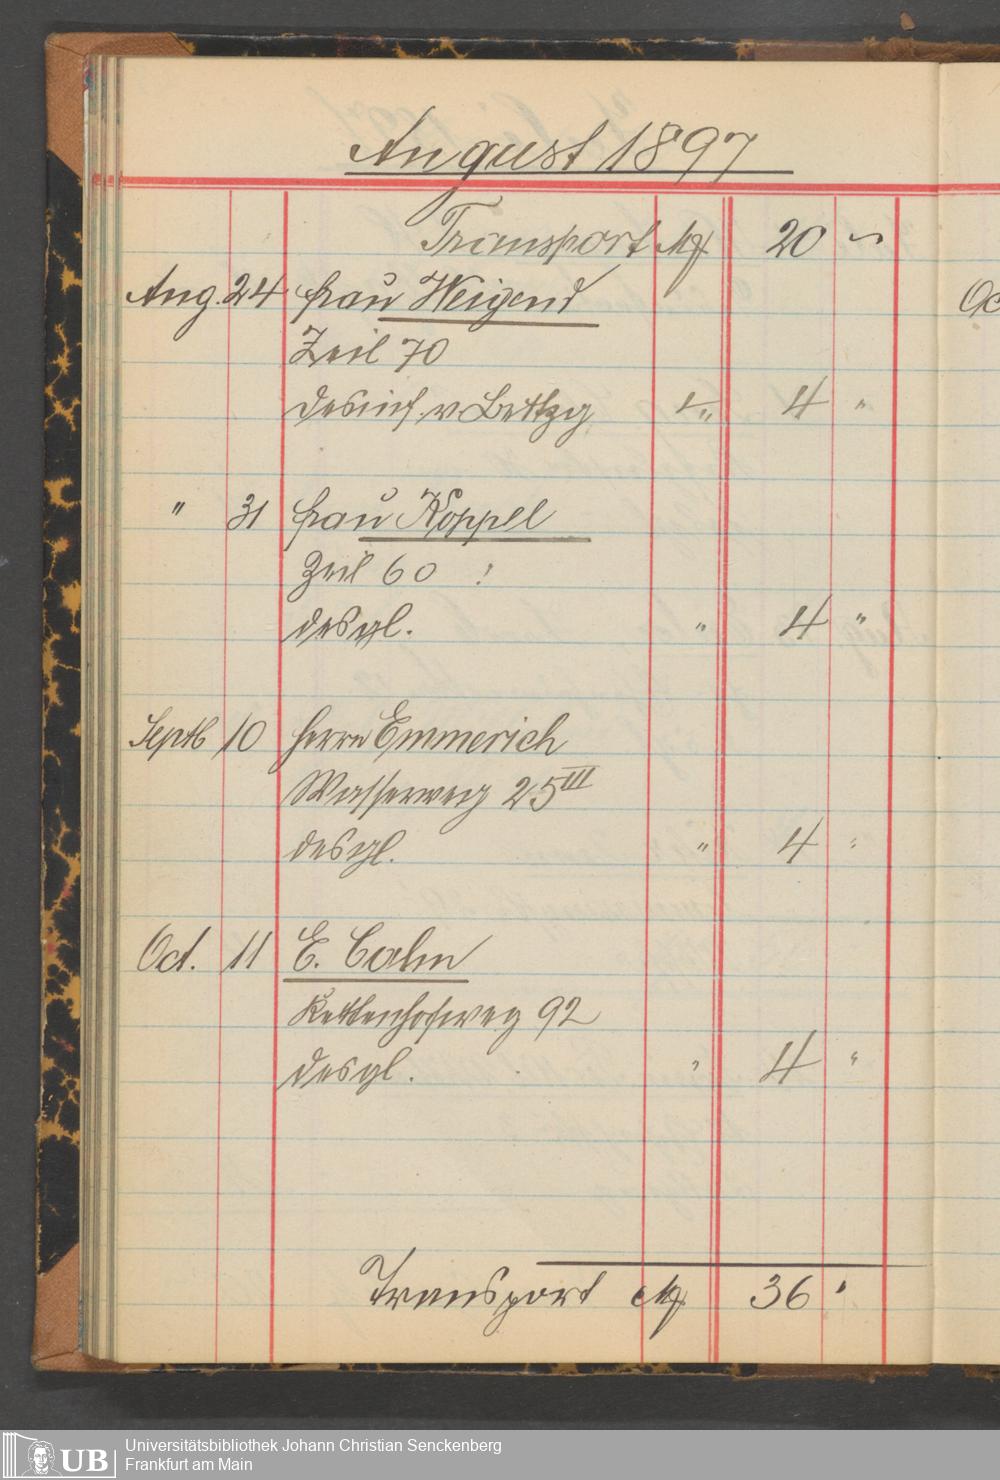 August 1897
Transport M 20 ~
Aug. 24 Frau Weigend
Zeil 70
Desinf. v. Bettzg. " 4 "
" 31 Frau Koppel
Zeil 60
desgl. " 4 "
Septb 10 Herrn Emmerich
Wasserweg 25 III
desgl. " 4 "
Oct. 11 E. Cahn
Kettenhofweg 92
desgl. " 4 "
Transport M 36 "
Oc
UB Universitätsbibliothek Johann Christian Senckenberg
Frankfurt am Main